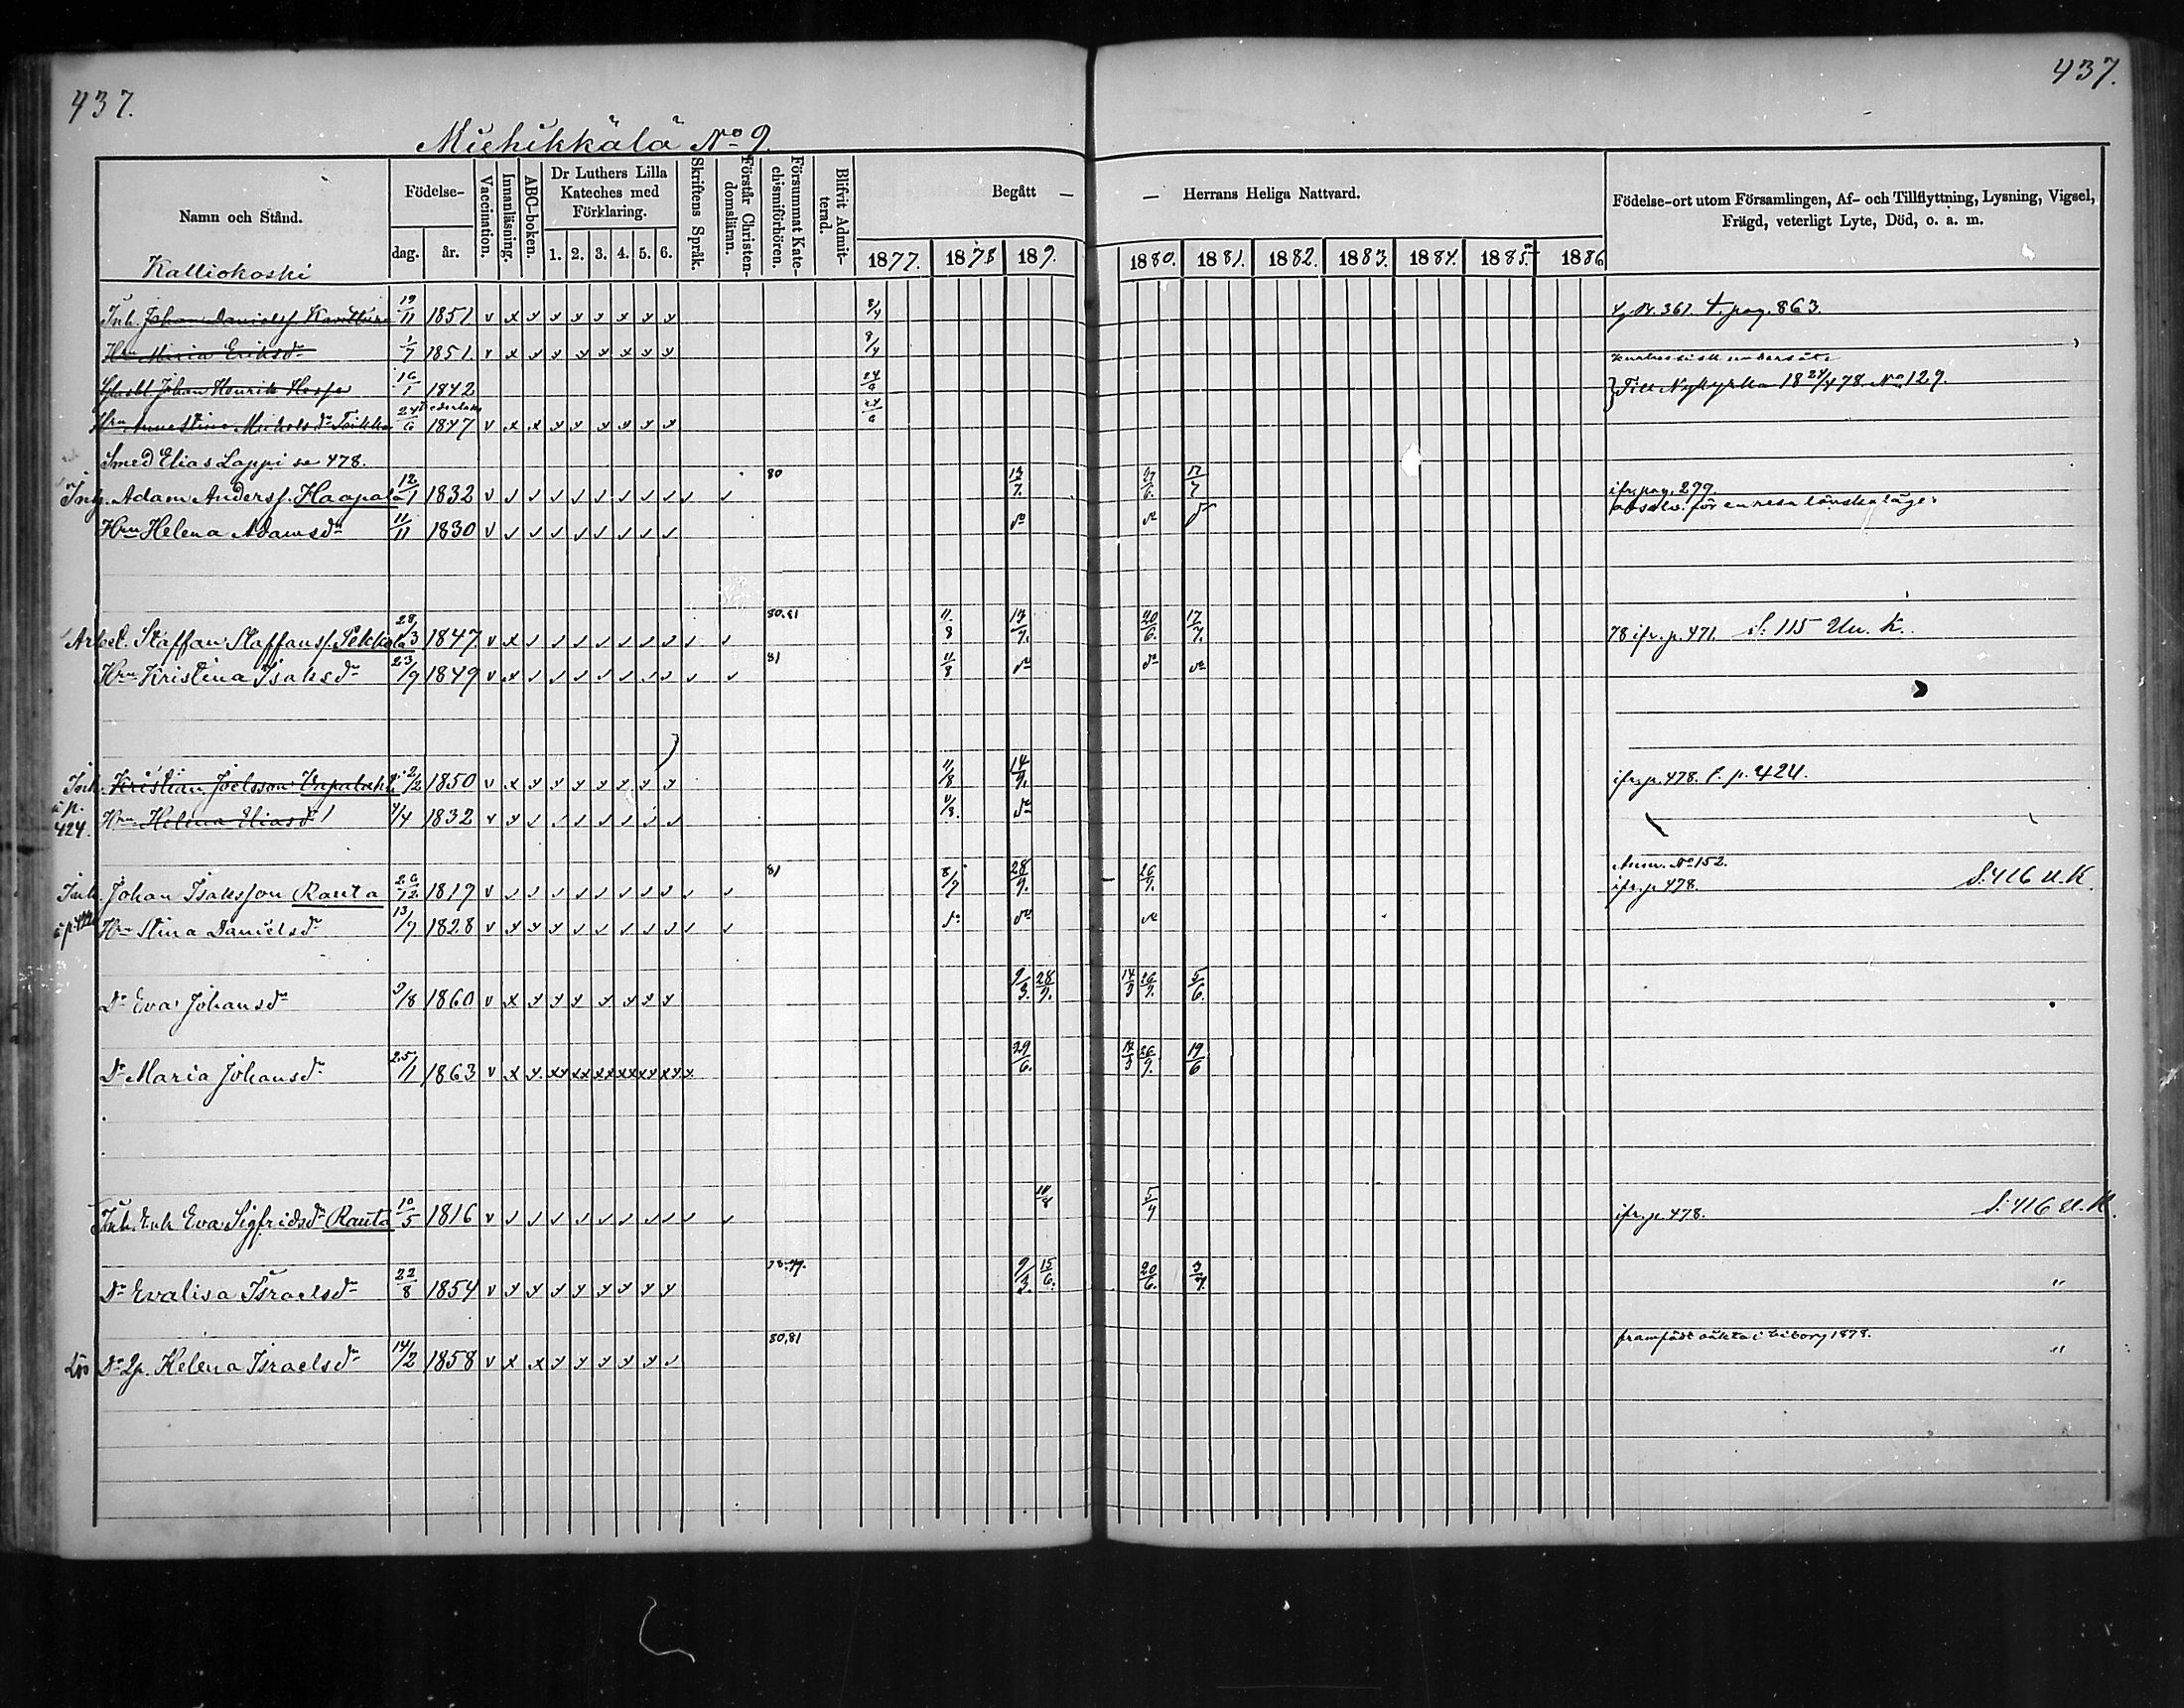 437.
437.
Miehikkälä No 9.
Namn och Stånd.
Födelse-
dag.
år.
Vaccination.
Innanläsning.
ABC-boken.
Dr Luthers Lilla Kateches med Förklaring.
1. 2. 3. 4. 5. 6.
Skriftens Språk.
Förstår Christendomsläran.
Försummat Katechismiförhören.
Blifvit Admitterad.
Begått — — Herrans Heliga Nattvard.
1877. 1878 189. 1880. 1881. 1882. 1883. 1884. 1885. 1886
Födelse-ort utom Församlingen, Af- och Tillflyttning, Lysning, Vigsel,
Frägd, veterligt Lyte, Död, o. a. m.
Kalliokoski
Inh. Johan Danielsf. 19/11 1851 v x x x x x x x x 8/4 361. t. pag. 863.
Hru Maria Eriksdr 1/7 1851 v x x x x x x x x 8/4
Johan Henrik 16/1 1842 24/6 Till Nykyrka 18 24/4 78 No 129.
Hru Anna Stina Michelsdr Toikka 24/6 1847 v x x x x x x x x 24/6
Smed Elias Lappi se 478.
Inh. Adam Andersf. Haapala 12/1 1832 80 13/7. 27/6. 17/7 ifr. pag. 299
Hru Helena Adamsdr 11/11 1830 dr dr dr
Arbet. Staffan Staffansf. Pekkola 28/3 1847 80.81 11/8 13/7. 20/6. 17/7. 78 ifr. p. 471. S: 115 Un. K.
Hru Kristina Isaksdr 23/9 1849 81 11/8 dr dr dr
Inh. Kristian Joelsson 2/2 1850 11/8 14/9. ifr. p. 478. t. p. 424.
å p. 424.
Hru Helena Eliasdr 4/4 1832 11/8. dr
Anm. No 152.
Inh. Johan Isaksson Rauta 26/12 1819 81 8/9 28/9. 26/9. ifr. p. 478. S: 416 U. K.
Hru Stina Danielsdr 13/9 1828 dr dr dr
Dr Eva Johansdr 9/8 1860 9/3. 28/9. 14/3 26/9. 5/6.
Dr Maria Johansdr 25/1 1863 29/6. 14/3 26/9. 19/6
Inh. Enk. Eva Sigfridsdr Rauta 10/5 1816 10/8 5/9 ifr. p. 478. S: 416 U. K.
Dr Evalisa Israelsdr 22/8 1854 9/3. 15/6. 20/6. 3/7. "
Lös Dr Qp. Helena Israelsdr 14/2 1858 80,81 1878. "